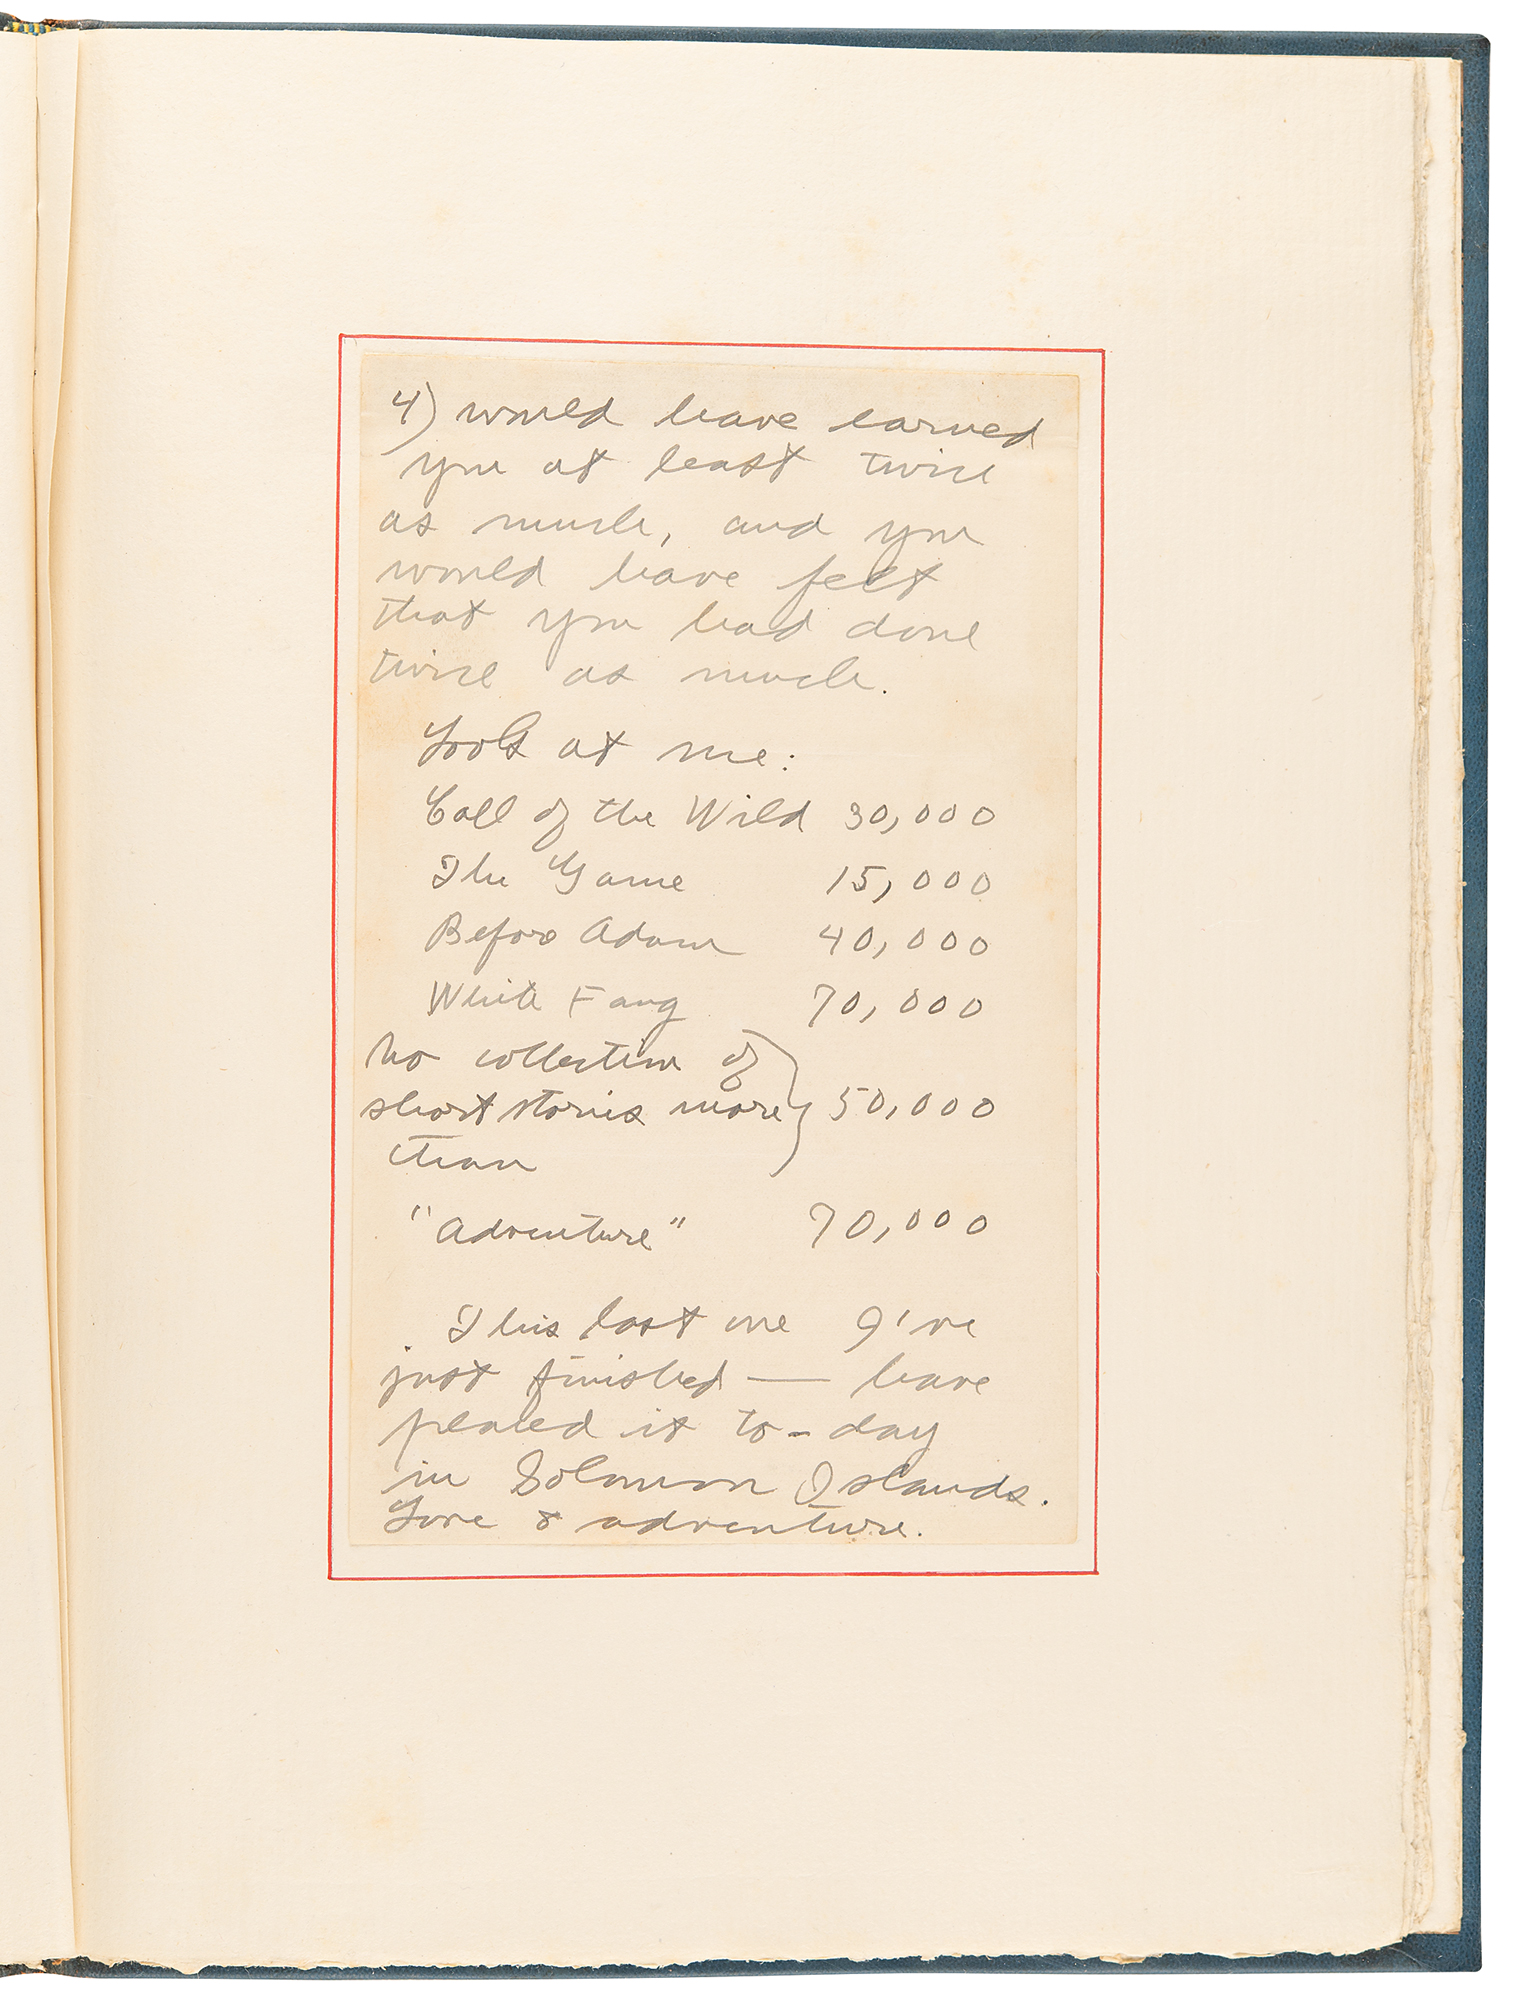 4) would have earned
you at least twice
as much, and you
would have felt
that you had done
twice as much.
Look at me:
Call of the Wild 30,000
The Game 15,000
Before Adam 40,000
White Fang 70,000
No collection of
short stories more } 50,000
than
"Adventure" 70,000
This last one I've
just finished — have
placed it to-day
in Solomon Islands.
Love & adventure.